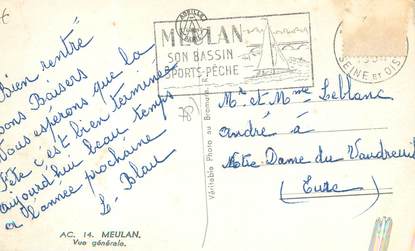 MEULAN
SON BASSIN
SPORTS-PÊCHE
SEINE ET OISE
Bien rentré
bons Baisers
Nous espérons que la
fête c'est bien terminée
aujourd'hui beau temps
a l'année prochaine
L. Blau
(78)
Mr et Mme Leblanc
andré à
Notre Dame du Vaudreuil
(Eure)
Véritable Photo au Bromure
AC. 14. MEULAN.
Vue générale.